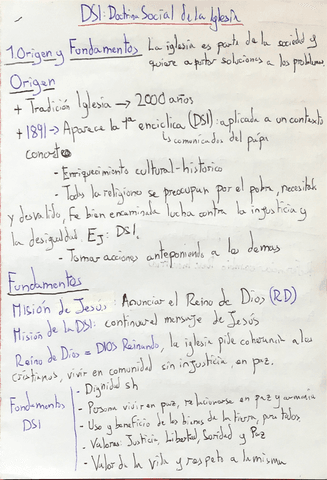 DSI: Doctrina Social de la Iglesia
1. Origen y Fundamentos La iglesia es parte de la sociedad y
quiere aportar soluciones a los problemas.
Origen
+ Tradición Iglesia → 2000 años
+ 1891 → Aparece la 1ª encíclica (DSI) aplicada a un contexto
↳ comunicados del papa
concreto
- Enriquecimiento cultural-histórico
- Todas la religiones se preocupan por el pobre, necesitado
y desvalido, Fe bien encaminada lucha contra la injusticia y
la desigualdad Ej: DSI.
- Tomar acciones anteponiendo a los demas
Fundamentos
Misión de Jesús: Anunciar el Reino de Dios (RD)
Misión de la DSI: continuar el mensaje de Jesús
Reino de Dios = DIOS Reinando, la iglesia pide a los
cristianos, vivir en comunidad sin injusticia, en paz.
Fundamentos
DSI
- Dignidad sh
- Persona vivir en paz, relacionarse en paz y armonía
- Uso y beneficio de los bienes de la tierra, para todos.
- Valores: Justicia, Libertad, y Paz
- Valor de la vida y respeto a la misma